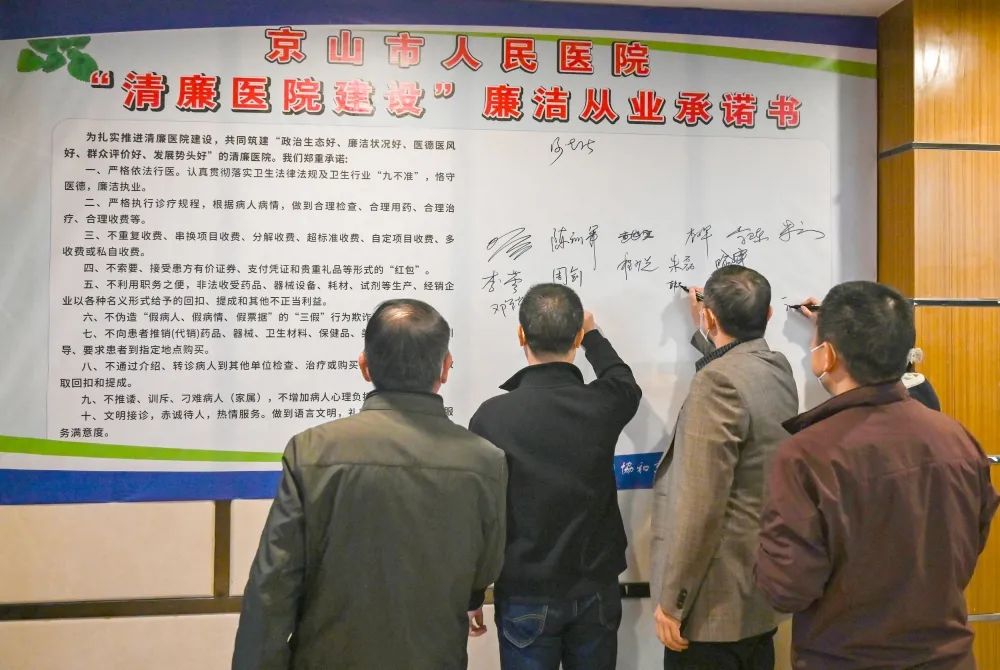 京山市人民医院
“清廉医院建设”廉洁从业承诺书
为扎实推进清廉医院建设，共同筑建“政治生态好、廉洁状况好、医德医风
好、群众评价好、发展势头好”的清廉医院。我们郑重承诺：
一、严格依法行医。认真贯彻落实卫生法律法规及卫生行业“九不准”，恪守
医德，廉洁执业。
二、严格执行诊疗规程，根据病人病情，做到合理检查、合理用药、合理治
疗、合理收费等。
三、不重复收费、串换项目收费、分解收费、超标准收费、自定项目收费、多
收费或私自收费。
四、不索要、接受患方有价证券、支付凭证和贵重礼品等形式的“红包”。
五、不利用职务之便，非法收受药品、器械设备、耗材、试剂等生产、经销企
业以各种名义形式给予的回扣、提成和其他不正当利益。
六、不伪造“假病人、假病情、假票据”的“三假”行为欺诈
七、不向患者推销(代销)药品、器械、卫生材料、保健品、
导、要求患者到指定地点购买。
八、不通过介绍、转诊病人到其他单位检查、治疗或购买
取回扣和提成。
九、不推诿、训斥、刁难病人（家属），不增加病人心理负担
十、文明接诊，赤诚待人，热情服务。做到语言文明，礼
务满意度。
服
陈训军
李莹 周剑 朱磊
邓
协和